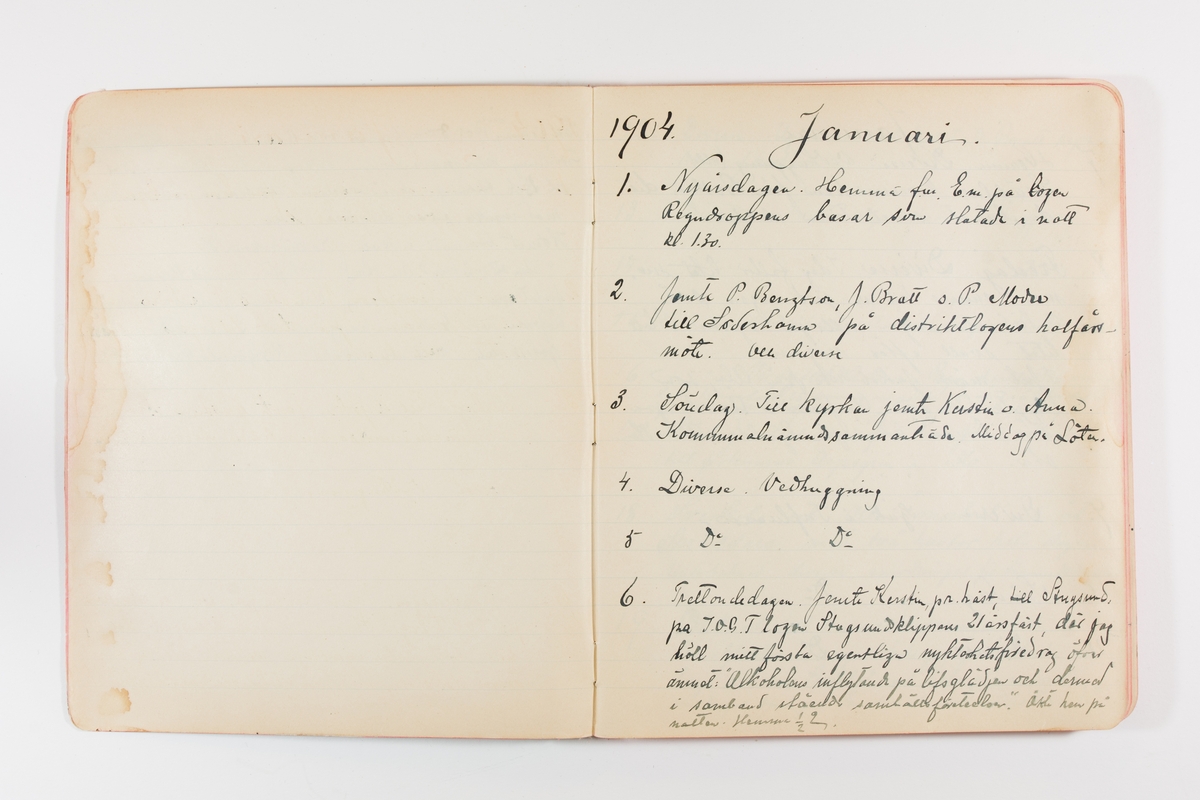 1904. Januari.
1. Nyårsdagen. Hemma fm. E.m. på logen
Regndroppens basar som slutade i natt
kl. 1.30.
2. Jemte P. Bengtson, J. Bratt o. P. Modee
till Söderhamn på distriktlogens halfårs-
möte. och diverse
3. Söndag. Till kyrkan jemte Kerstin o. Anna.
Kommunalnämndsammanträde. Middag på Löten.
4. Diverse. Vedhuggning
5 Do Do
6. Trettondedagen. Jemte Kerstin, pr. häst, till Stugsund,
på I.O.G.T logen Stugsundsklippans 21årsfäst, där jag
höll mitt första egentliga nykterhetsföredrag öfver
ämnet: "Alkoholens inflytande på lifsglädjen och dermed
i samband stående samhällsföreteelser." Åkte hem på
natten. Hemma ½ 2.